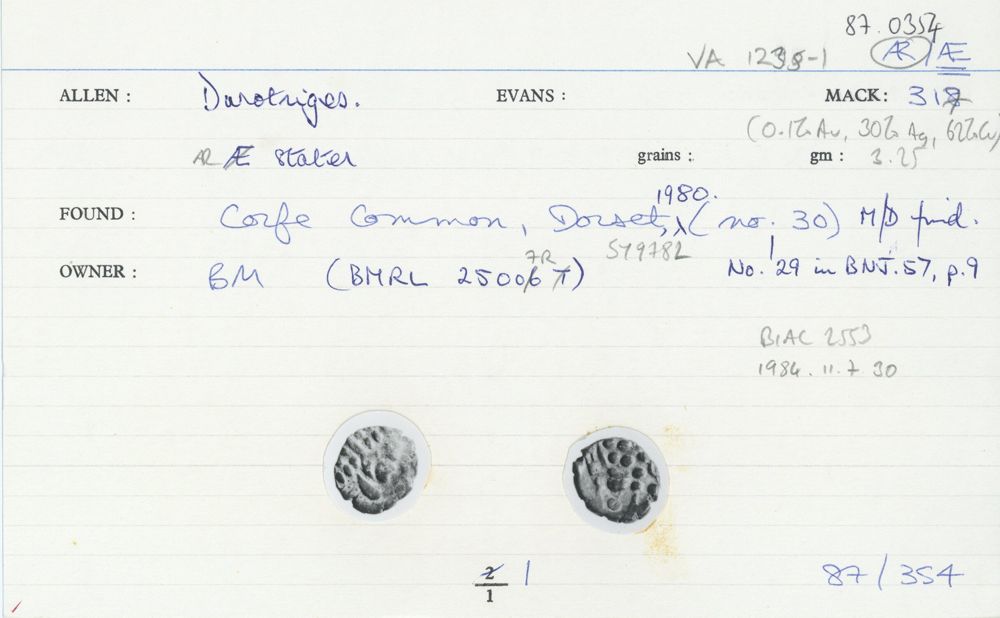 87.0354
VA 1235-1 AR/Æ
ALLEN : Durotriges. EVANS : MACK: 317
(0.1% Au, 30% Ag, 62% Cu)
AR Æ stater grains : gm : 3.25
1980.
FOUND : Corfe Common, Dorset, (no. 30) M/D find.
SY9782
7R
OWNER : BM (BMRL 25006 T) No. 29 in BNJ. 57, p.9
BIAC 2553
1984.11.7 30
2/1 1 87/354